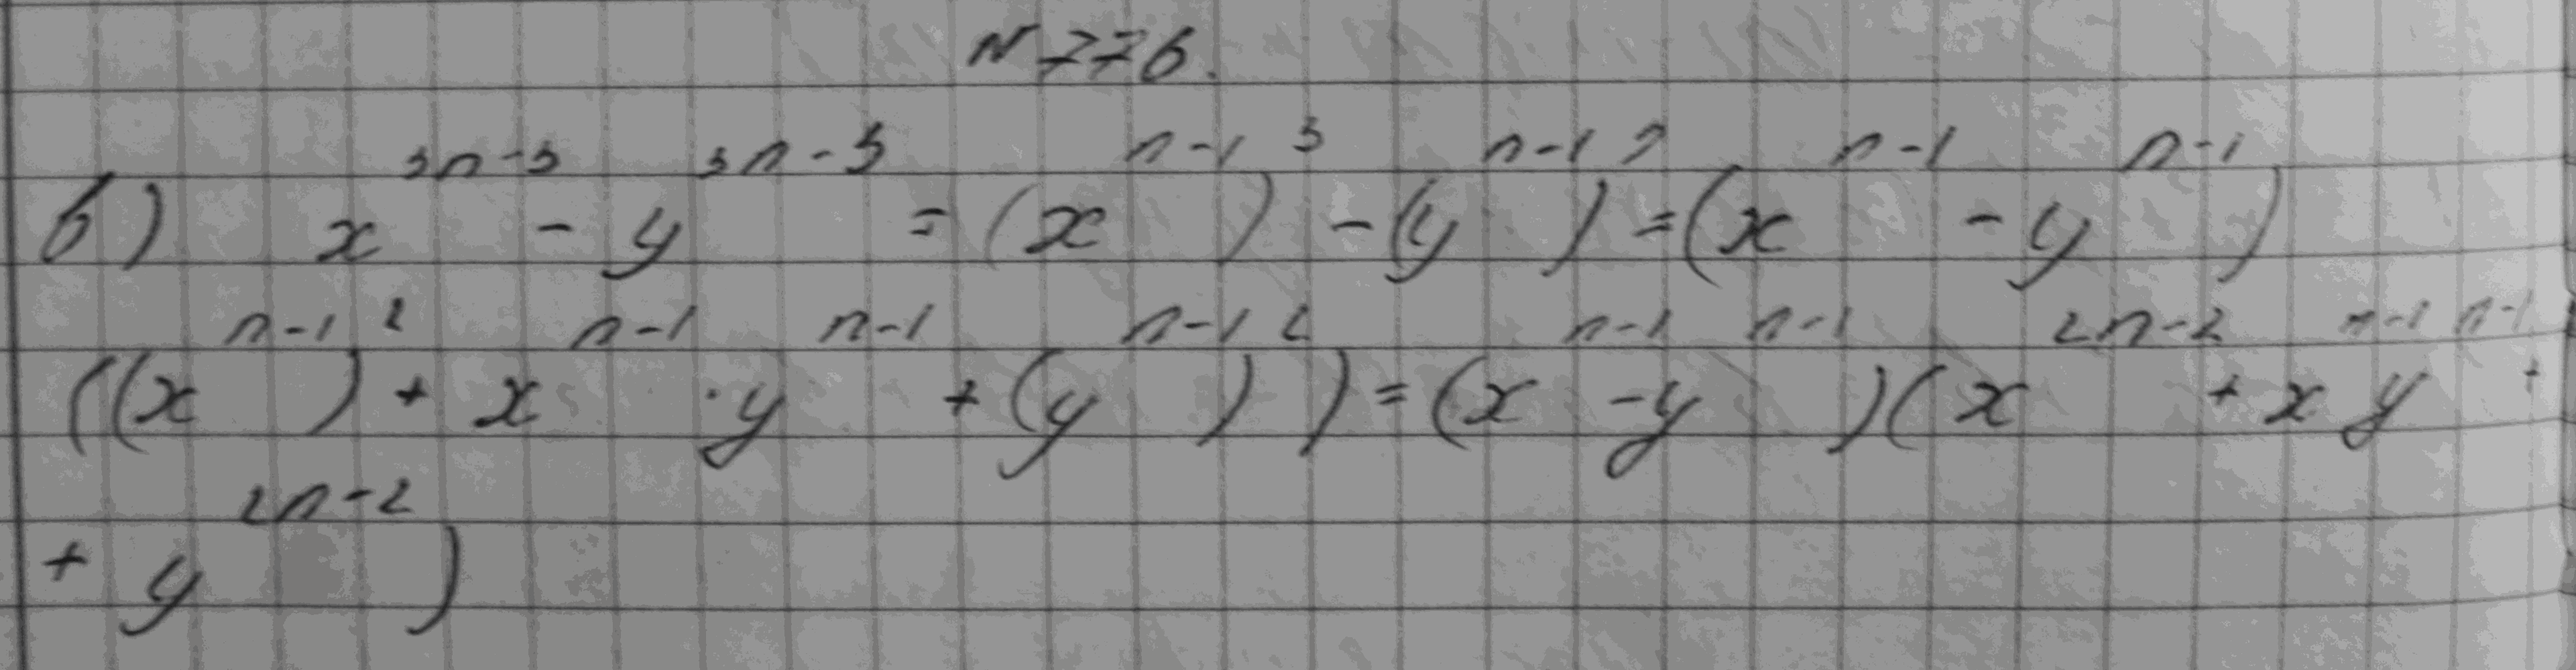 № 776.
в) x^{3n-3} - y^{3n-3} = (x^{n-1})^3 - (y^{n-1})^3 = (x^{n-1} - y^{n-1})
((x^{n-1})^2 + x^{n-1} · y^{n-1} + (y^{n-1})^2) = (x^{n-1} - y^{n-1})(x^{2n-2} + x^{n-1} y^{n-1} +
+ y^{2n-2})